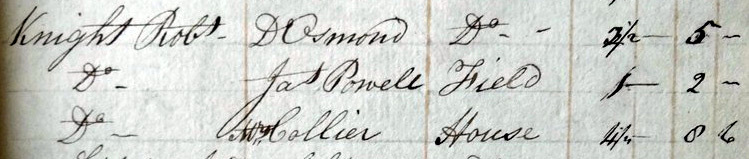 Knight Robt- D Osmond Do - - 2½ - 5 -
Do - Jas Powell Field 1 - 2 -
Do - Collier House 4½ - 8 6